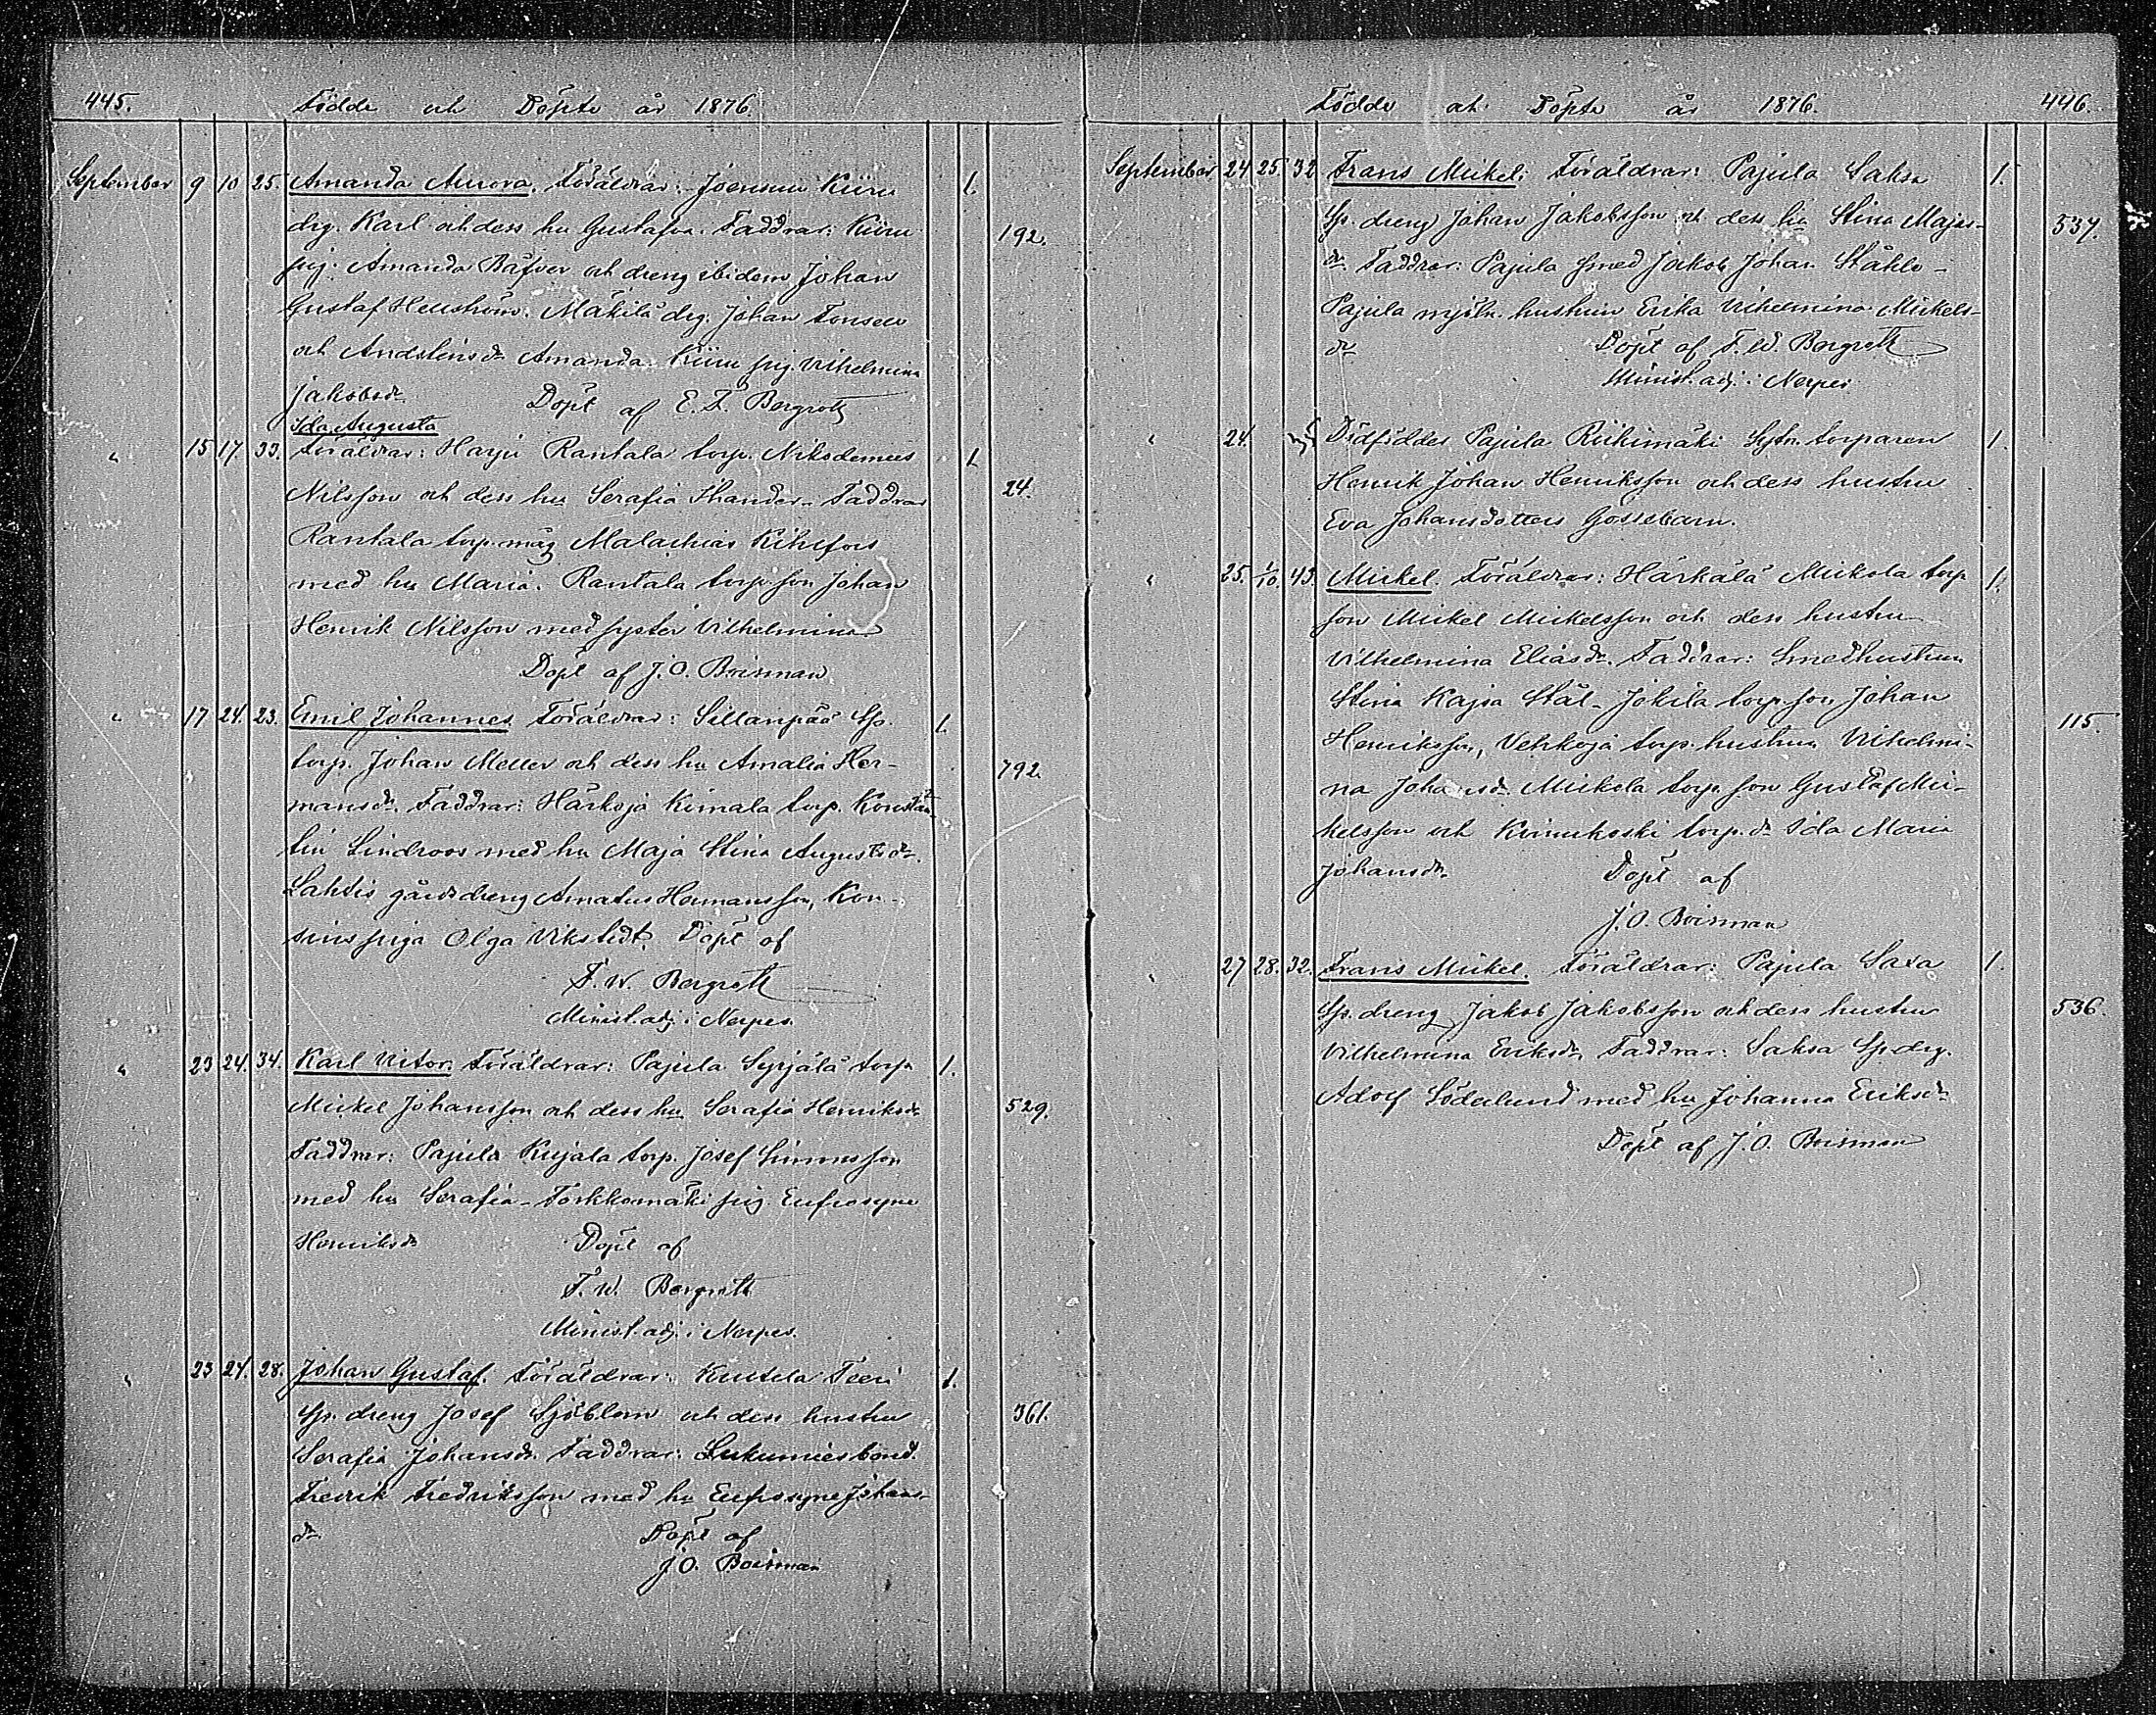 445. Födde och Döpte år 1876.
September 9 10 25. Amanda Aurora. Föräldrar: Joensuu Kiiru 1.
drg. Karl och dess hu Gustafva. Faddrar: Kiiru 192.
pig. Amanda Bäfver och dreng ibidem Johan
Gustaf Hellström. Mäkilä drg. Johan
och Amanda. Kiiru pig. Vilhelmina
Jakobsdr Döpt af E. F. Bergroth
Ida Augusta
" 15 17. 33. Föräldrar: Harju Rantala torp. Nikodemus 1.
Nilsson och dess hu Serafia Thander. Faddrar 24.
Rantala torp. måg Malachias Kihlfors
med hu Maria. Rantala torp. son Johan
Henrik Nilsson med syster Vilhelmina
Döpt af J. O. Boisman
" 17 24. 23. Emil Johannes Föräldrar: Sillanpää Sp. 1.
torp. Johan Meller och dess hu Amalia Her- 792.
mansdr. Faddrar: Härkoja Kimala torp. Konstan-
tin Lindroos med hu Maja Stina Augustsdr.
Lahtis gårdsdreng Amatus Hermansson, Kon-
sins piga Olga Vikstedt. Döpt af
F. W. Bergroth
Minist. adj. i Nerpes.
" 23 24. 34. Karl Vitor. Föräldrar: Pajula Syrjälä torp. 1.
Mickel Johansson och dess hu Serafia Henriksdr 529.
Faddrar: Pajula Kujala torp. Josef Simonsson
med hu Serafia - Torkkomäki pig Eufrosyne
Henriksdr Döpt af
F. W. Bergroth
Minist. adj. i Nerpes.
" 23 24. 28. Johan Gustaf. Föräldrar: Kutila Teeri 1.
Sp. dreng Josef Sjöblom och dess hustru 361.
Serafia Johansdr. Faddrar: Lukumies bond.
Fredrik Fredriksson med hu Eufrosyne Johans-
dr Döpt af
J. O. Boisman
Födde och Döpte år 1876. 446.
September 24 25. 32 Frans Mikel: Föräldrar: Pajula Saksa 1.
Sp. dreng Johan Jakobsson och dess hu Stina Majas- 537.
dr. Faddrar: Pajula smed Jakob Johan Ståhle -
Pajula mjöln. hustrun Erika Vilhelmina Mickels-
dr Döpt af F. W. Bergroth
Minist. adj. i Nerpes
" 24. Dödföddes Pajula Riihimäki Sytn. torparen 1.
Henrik Johan Henriksson och dess hustru
Eva Johansdotters Gossebarn.
" 25. 1/10. 43. Mickel. Föräldrar: Härkälä Mickola torp. 1.
son Mickel Mickelsson och dess hustru
Vilhelmina Eliasdr. Faddrar: Smedhustrun
Stina Kajsa Stål - Jokila torp. son Johan 115.
Henriksson, Vehkoja torp. hustrun Vilhelmi-
na Johansdr Mickola torp. son Gustaf Mic-
kelsson och Kivinikoski torp. dr Ida Maria
Johansdr. Döpt af
J. O. Boisman
" 27 28. 32. Frans Mickel. Föräldrar: Pajula Saxa 1.
Sp. dreng Jakob Jakobsson och dess hustru 536.
Vilhelmina Eriksdr Faddrar: Saksa Sp. drg.
Adolf Söderlund med hu Johanna Eriksdr
Döpt af J. O. Boisman